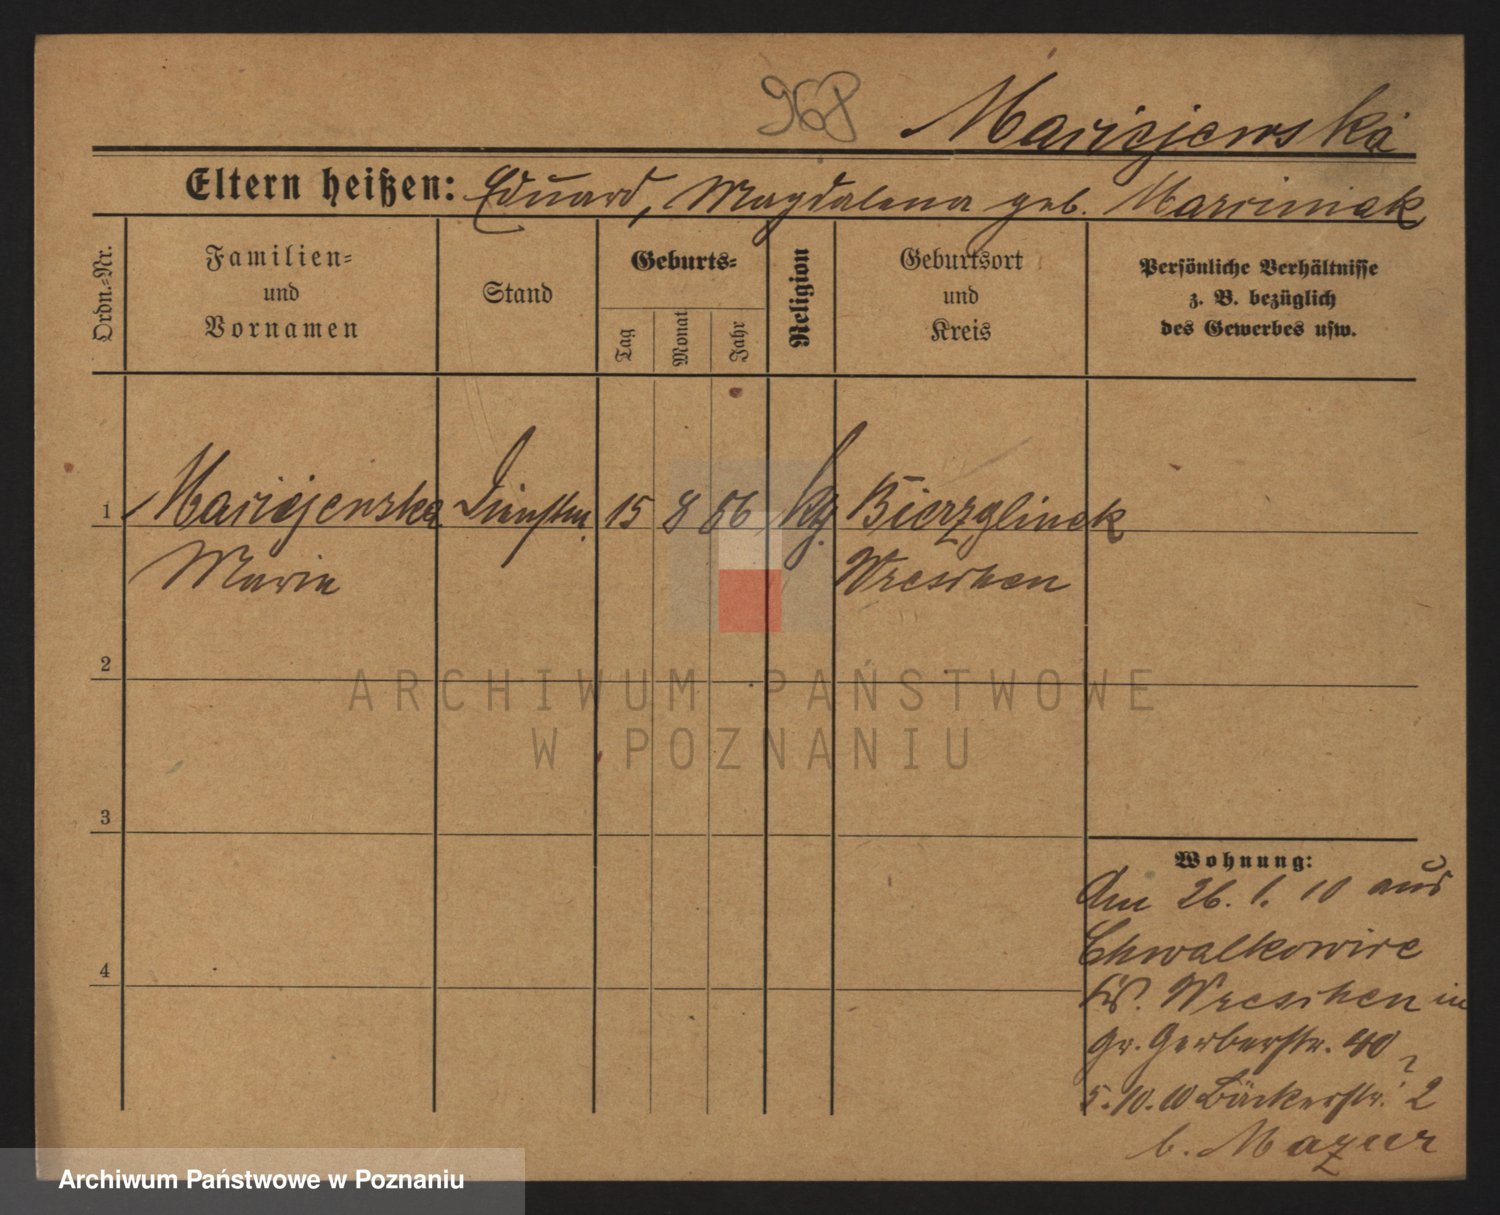 968 Maciejewska
Eltern heißen: Eduard, Magdalena geb. Marciniak
Ordn.-Nr.
Familien-
und
Vornamen
Stand
Geburts-
Tag
Monat
Jahr
Religion
Geburtsort
und
Kreis
Persönliche Verhältnisse
z. B. bezüglich
des Gewerbes usw.
1 Maciejewska Dienstm. 15 8 86 kg. Bierzglinek
Maria Wreschen
2
3
4
Wohnung:
Am 26. 1. 10 aus
Chwalkowice
Kr. Wreschen in
Gr. Gerberstr. 40
5.10.10 Bäckerstr. 2
b. Mazur
ARCHIWUM PAŃSTWOWE
W POZNANIU
Archiwum Państwowe w Poznaniu